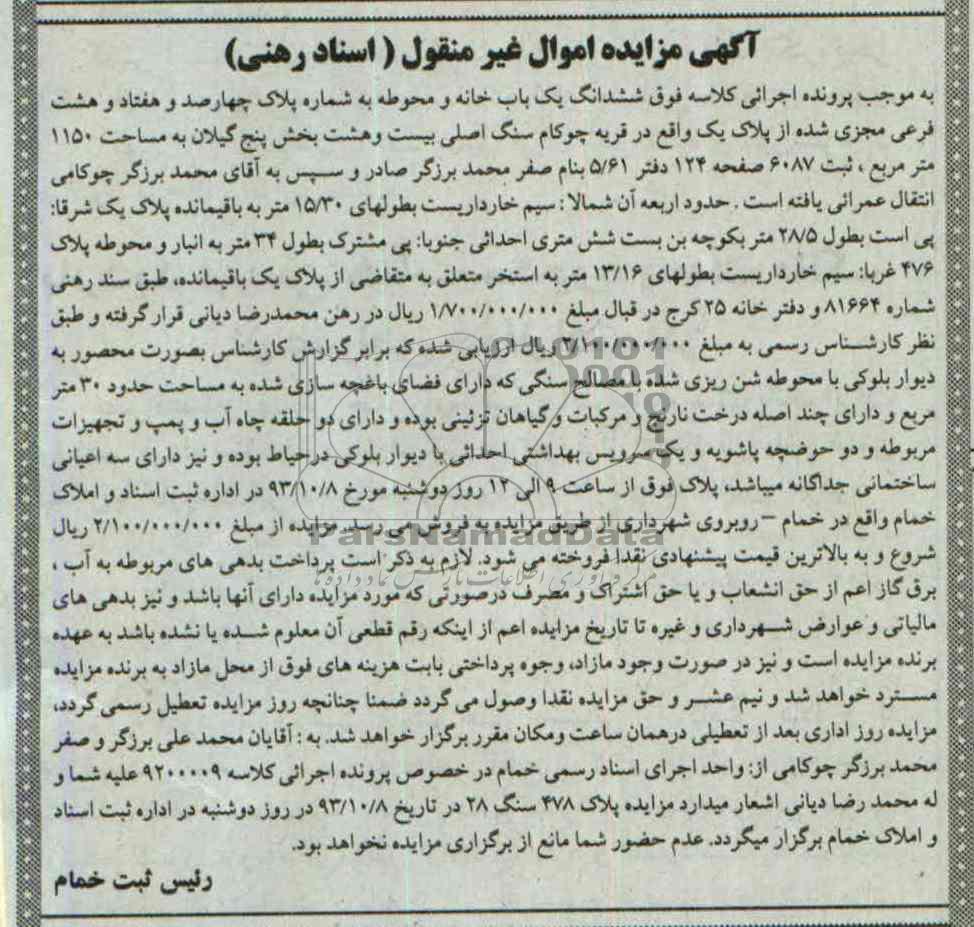 آگهی مزایده اموال غیر منقول ( اسناد رهنی)
به موجب پرونده اجرائی کلاسه فوق ششدانگ یک باب خانه و محوطه به شماره پلاک چهارصد و هفتاد و هشت
فرعی مجزی شده از پلاک یک واقع در قریه چوکام سنگ اصلی بیست وهشت بخش پنج گیلان به مساحت ۱۱۵۰
متر مربع ، ثبت ۶۰۸۷ صفحه ۱۲۴ دفتر ۵/۶۱ بنام صفر محمد برزگر صادر و سپس به آقای محمد برزگر چوکامی
انتقال عمرائی یافته است . حدود اربعه آن شمالا : سیم خارداریست بطولهای ۱۵/۳۰ متر به باقیمانده پلاک یک شرقا:
پی است بطول ۲۸/۵ متر بکوچه بن بست شش متری احداثی جنوبا: پی مشترک بطول ۳۴ متر به انبار و محوطه پلاک
۴۷۶ غربا: سیم خارداریست بطولهای ۱۳/۱۶ متر به استخر متعلق به متقاضی از پلاک یک باقیمانده، طبق سند رهنی
شماره ۸۱۶۶۴ و دفتر خانه ۲۵ کرج در قبال مبلغ ۱/۷۰۰/۰۰۰/۰۰۰ ریال در رهن محمدرضا دیانی قرار گرفته و طبق
نظر کارشناس رسمی به مبلغ ۲/۱۰۰/۰۰۰/۰۰۰ ریال ارزیابی شده که برابر گزارش کارشناس بصورت محصور به
دیوار بلوکی با محوطه شن ریزی شده با مصالح سنگی که دارای فضای باغچه سازی شده به مساحت حدود ۳۰ متر
مربع و دارای چند اصله درخت نارنج و مرکبات و گیاهان تزئینی بوده و دارای دو حلقه چاه آب و پمپ و تجهیزات
مربوطه و دو حوضچه پاشویه و یک سرویس بهداشتی احداثی با دیوار بلوکی درحیاط بوده و نیز دارای سه اعیانی
ساختمانی جداگانه میباشد، پلاک فوق از ساعت ۹ الی ۱۲ روز دوشنبه مورخ ۹۳/۱۰/۸ در اداره ثبت اسناد و املاک
خمام واقع در خمام – روبروی شهرداری از طریق مزایده به فروش می رسد. مزایده از مبلغ ۲/۱۰۰/۰۰۰/۰۰۰ ریال
ParsNamadData
شروع و به بالاترین قیمت پیشنهادی نقدا فروخته می شود. لازم به ذکر است پرداخت بدهی های مربوطه به آب ،
برق گاز اعم از حق انشعاب و یا حق اشتراک و مصرف درصورتی که مورد مزایده دارای آنها باشد و نیز بدهی های
مالیاتی و عوارض شهرداری و غیره تا تاریخ مزایده اعم از اینکه رقم قطعی آن معلوم شده یا نشده باشد به عهده
برنده مزایده است و نیز در صورت وجود مازاد، وجوه پرداختی بابت هزینه های فوق از محل مازاد به برنده مزایده
مسترد خواهد شد و نیم عشر و حق مزایده نقدا وصول می گردد ضمنا چنانچه روز مزایده تعطیل رسمی گردد،
مزایده روز اداری بعد از تعطیلی درهمان ساعت ومکان مقرر برگزار خواهد شد. به : آقایان محمد علی برزگر و صفر
محمد برزگر چوکامی از: واحد اجرای اسناد رسمی خمام در خصوص پرونده اجرائی کلاسه ۹۲۰۰۰۰۹ علیه شما و
له محمد رضا دیانی اشعار میدارد مزایده پلاک ۴۷۸ سنگ ۲۸ در تاریخ ۹۳/۱۰/۸ در روز دوشنبه در اداره ثبت اسناد
و املاک خمام برگزار میگردد. عدم حضور شما مانع از برگزاری مزایده نخواهد بود.
رئیس ثبت خمام